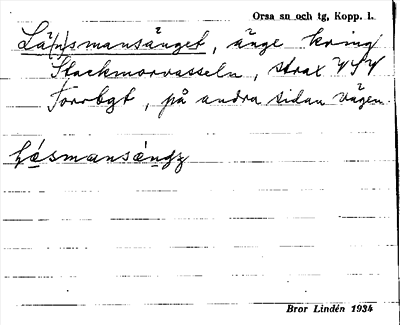 Orsa sn och tg, Kopp. l.
Lä(n)smansänget, änge kring
Stackmorvasseln, strax VSV
Torrbgt, på andra sidan vägen.
Bror Lindén 1934